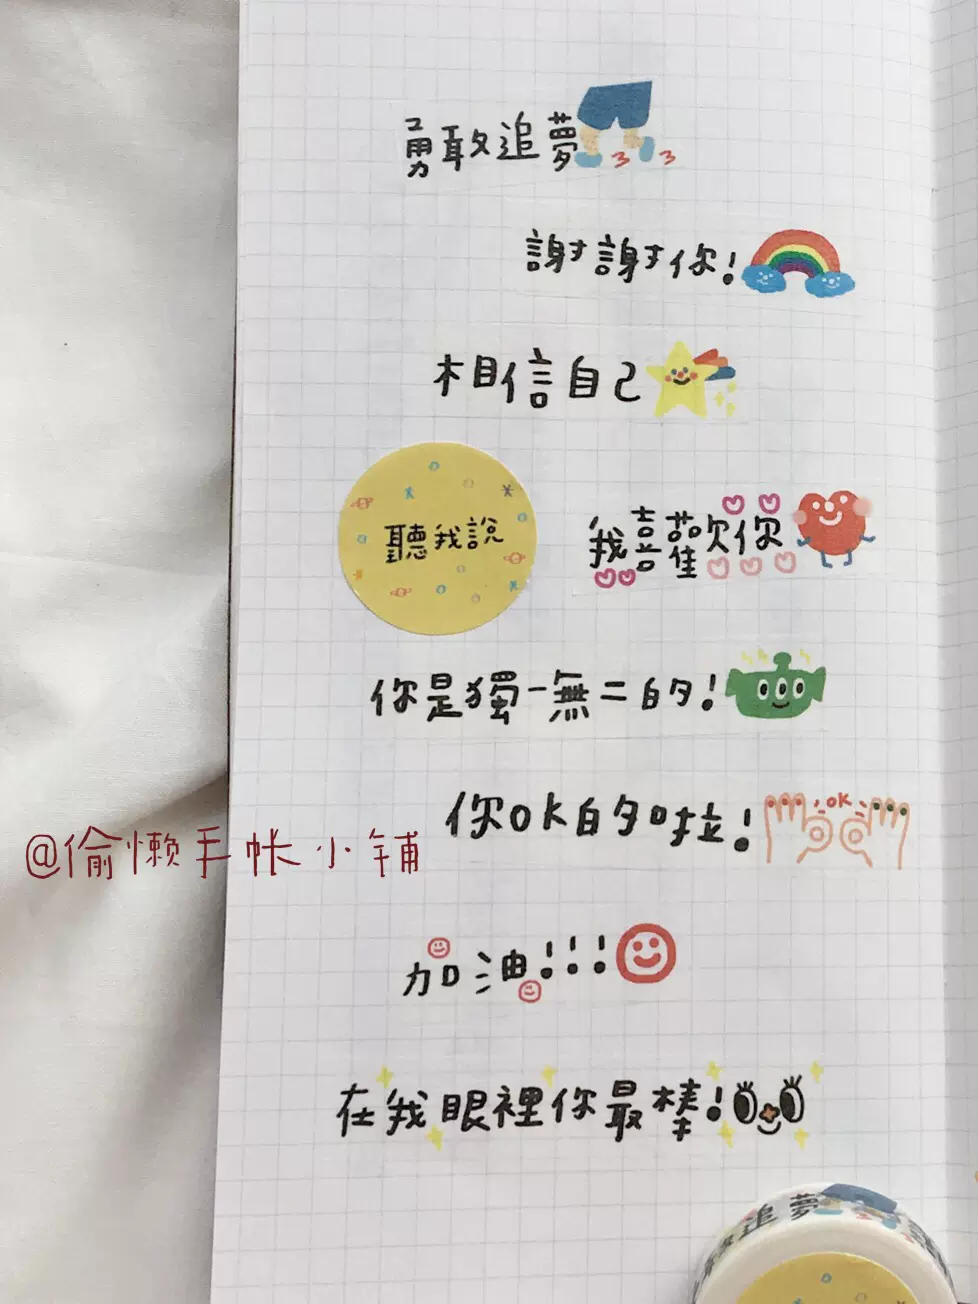 勇敢追夢
謝謝你!
相信自己
聽我說
我喜歡你
你是獨一無二的!
OK
你OK的啦!
@偷懶手帐小铺
加油!!!
在我眼裡你最棒!
追夢